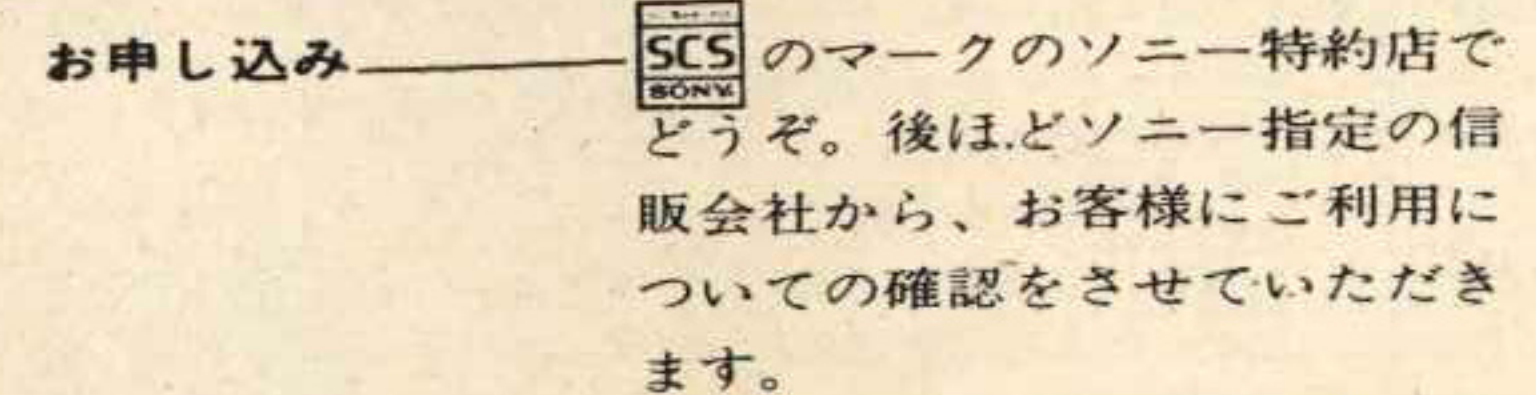 お申し込み――――SCSのマークのソニー特約店で
SONY
どうぞ。後ほどソニー指定の信
販会社から、お客様にご利用に
ついての確認をさせていただき
ます。